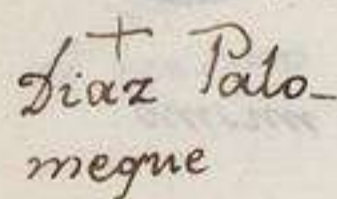 +
Diaz Palo-
meque